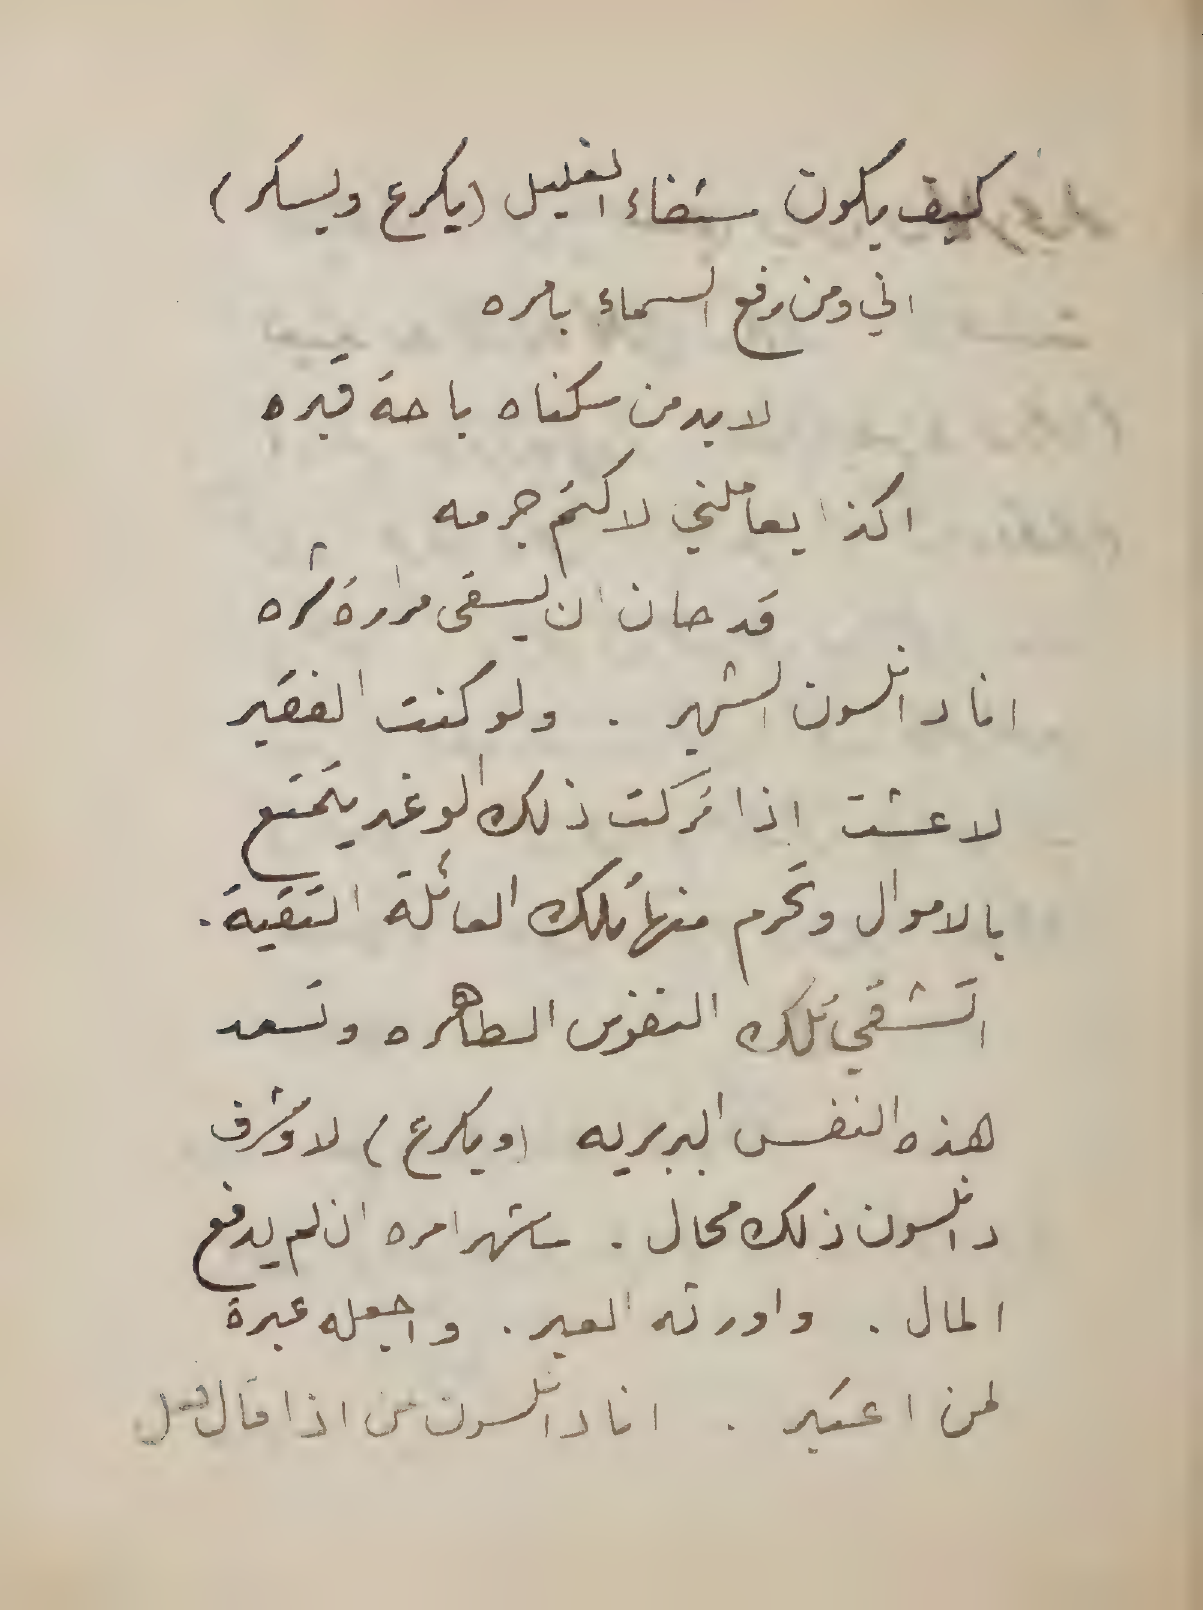 كيف يكون شفاء الغليل (يكرع ويسكر)
اني ومن رفع السماء بامره
لا بد من سكناه باحة قبره
اكذا يعاملني لاكتم جرمه
قد حان ان يسقى مرارة شره
انا دانلسون الشهير . ولو كنت الفقير
لا عشت اذا تركت ذلك الوغد يتمتع
بالاموال وتحرم منها تلك العائلة التقية .
اتشقي تلك النفوس الطاهره وتسعد
هذه النفس البربريه (ويكرع) لا وشرف
دانلسون ذلك محال . ساشهر امره ان لم يدفع
المال . واورثه العبر . واجعله عبرة
لمن اعتبر . انا دانلسون من اذا قال فعل